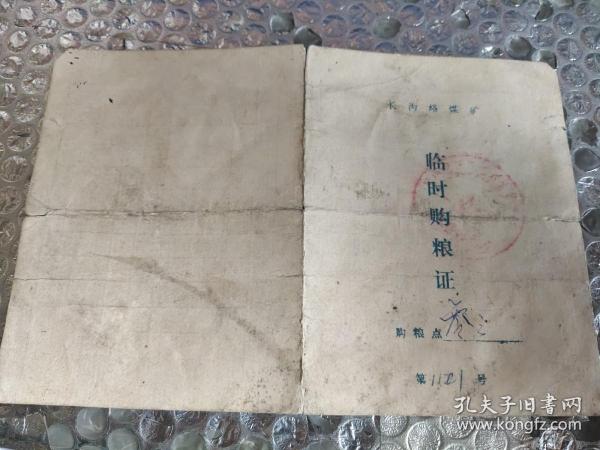 长沟峪煤矿
临时购粮证
购粮点
第1121号
孔夫子旧书网
www.kongfz.com